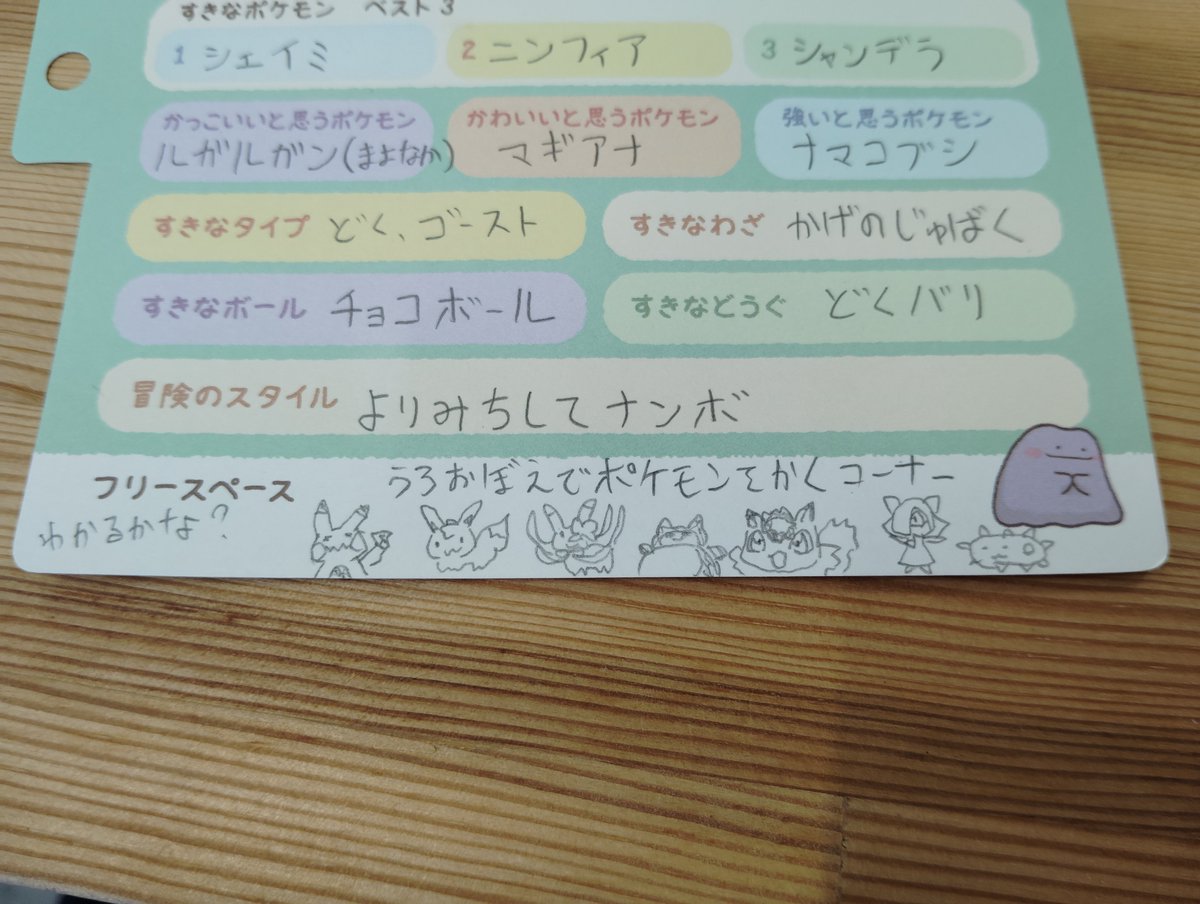 すきなポケモン ベスト3
1 シェイミ 2 ニンフィア 3 シャンデラ
かっこいいと思うポケモン かわいいと思うポケモン 強いと思うポケモン
ルガルガン(まよなか) マギアナ ナマコブシ
すきなタイプ どく、ゴースト すきなわざ かげのじゅばく
すきなボール チョコボール すきなどうぐ どくバリ
冒険のスタイル よりみちしてナンボ
フリースペース うろおぼえでポケモンてかくコーナー
わかるかな?